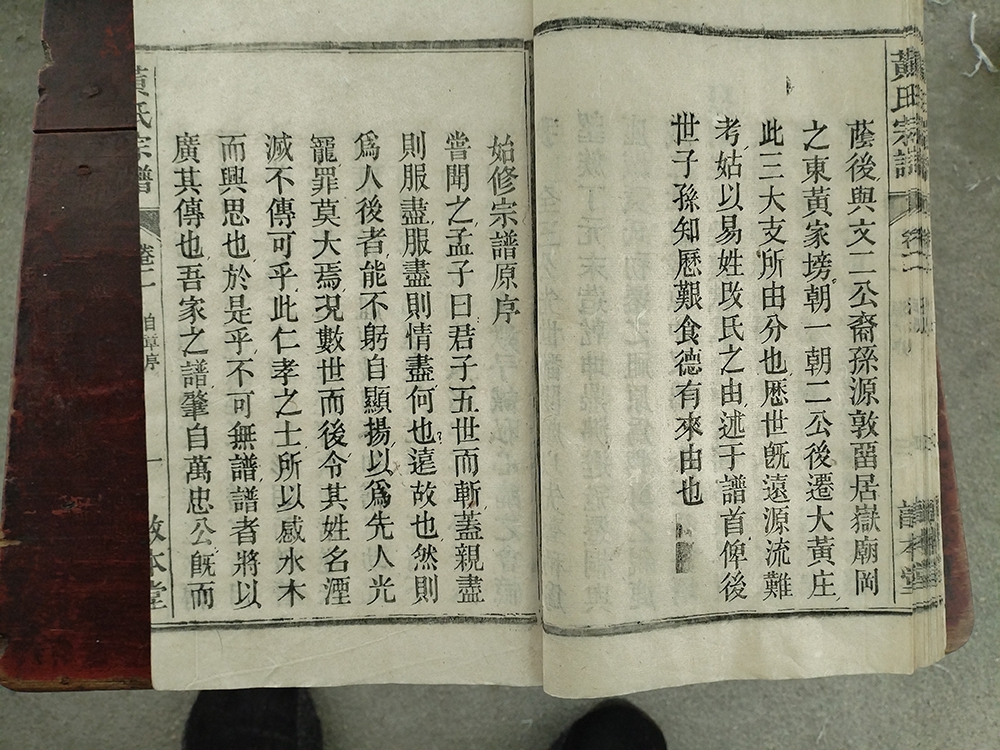 黃氏宗譜
卷二
蔭後與文二公裔孫源敦畱居嶽廟岡
之東黃家塝朝一朝二公後遷大黃庄
此三大支所由分也歷世旣遠源流難
考姑以易姓改氏之由述于譜首俾後
世子孫知歷艱食德有來由也
始修宗譜原序
嘗聞之孟子曰君子五世而斬蓋親盡
則服盡服盡則情盡何也遠故也然則
爲人後者能不躬自顯揚以爲先人光
寵罪莫大焉況數世而後令其姓名湮
滅不傳可乎此仁孝之士所以感水木
而興思也於是乎不可無譜譜者將以
廣其傳也吾家之譜肇自萬忠公旣而
黃氏宗譜
卷二
一
敦本堂